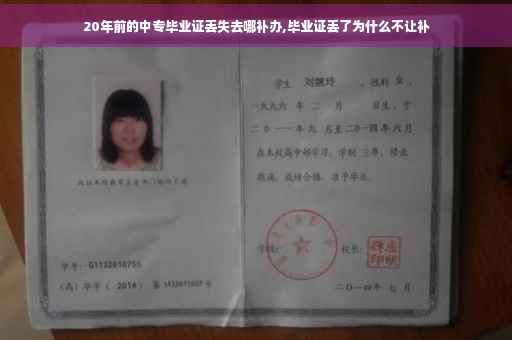 20年前的中专毕业证丢失去哪补办,毕业证丢了为什么不让补
学生 刘婉玲 ,性别 女 ,
一九九六 年 二 月 日生,于
二〇一一 年 九 月至 二〇一四 年 六 月
在本校高中部学习,学制 三 年,修业
期满,成绩合格,准予毕业。
学号: G1132010755
学校:
校长:
(高)毕字( 2014 )第 1432011027 号
二〇一四年 七 月